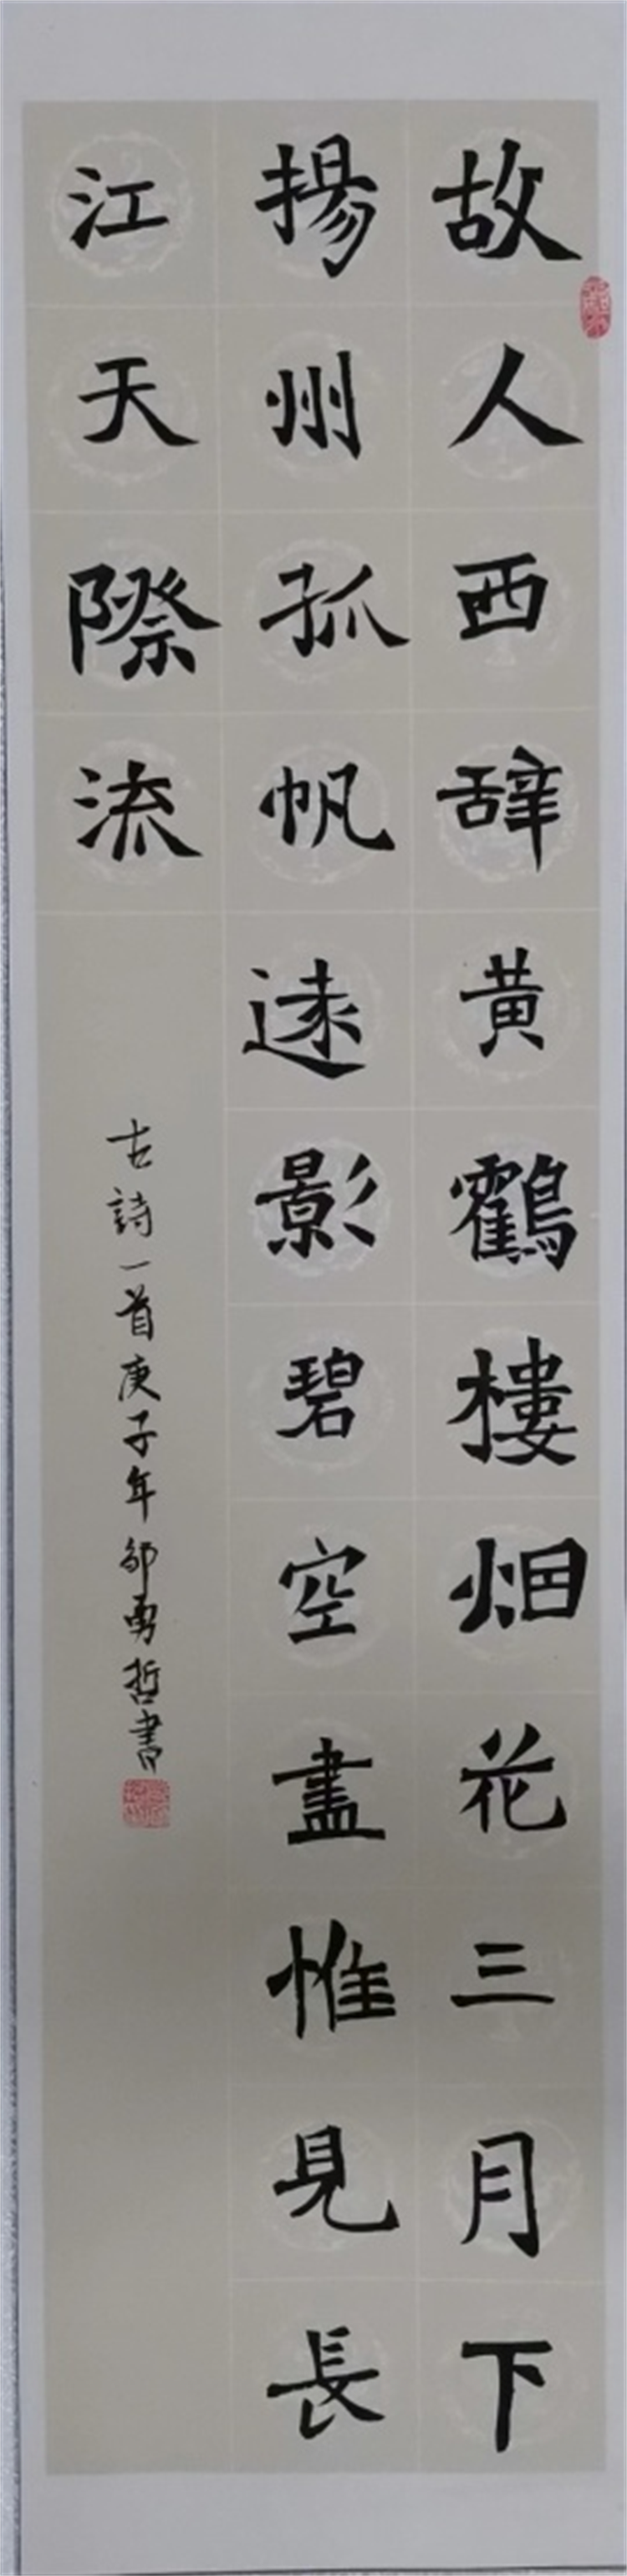 故人西辞黄鶴樓烟花三月下
揚州孤帆逺影碧空盡惟見長
江天際流
古詩一首庚子年邹勇哲書